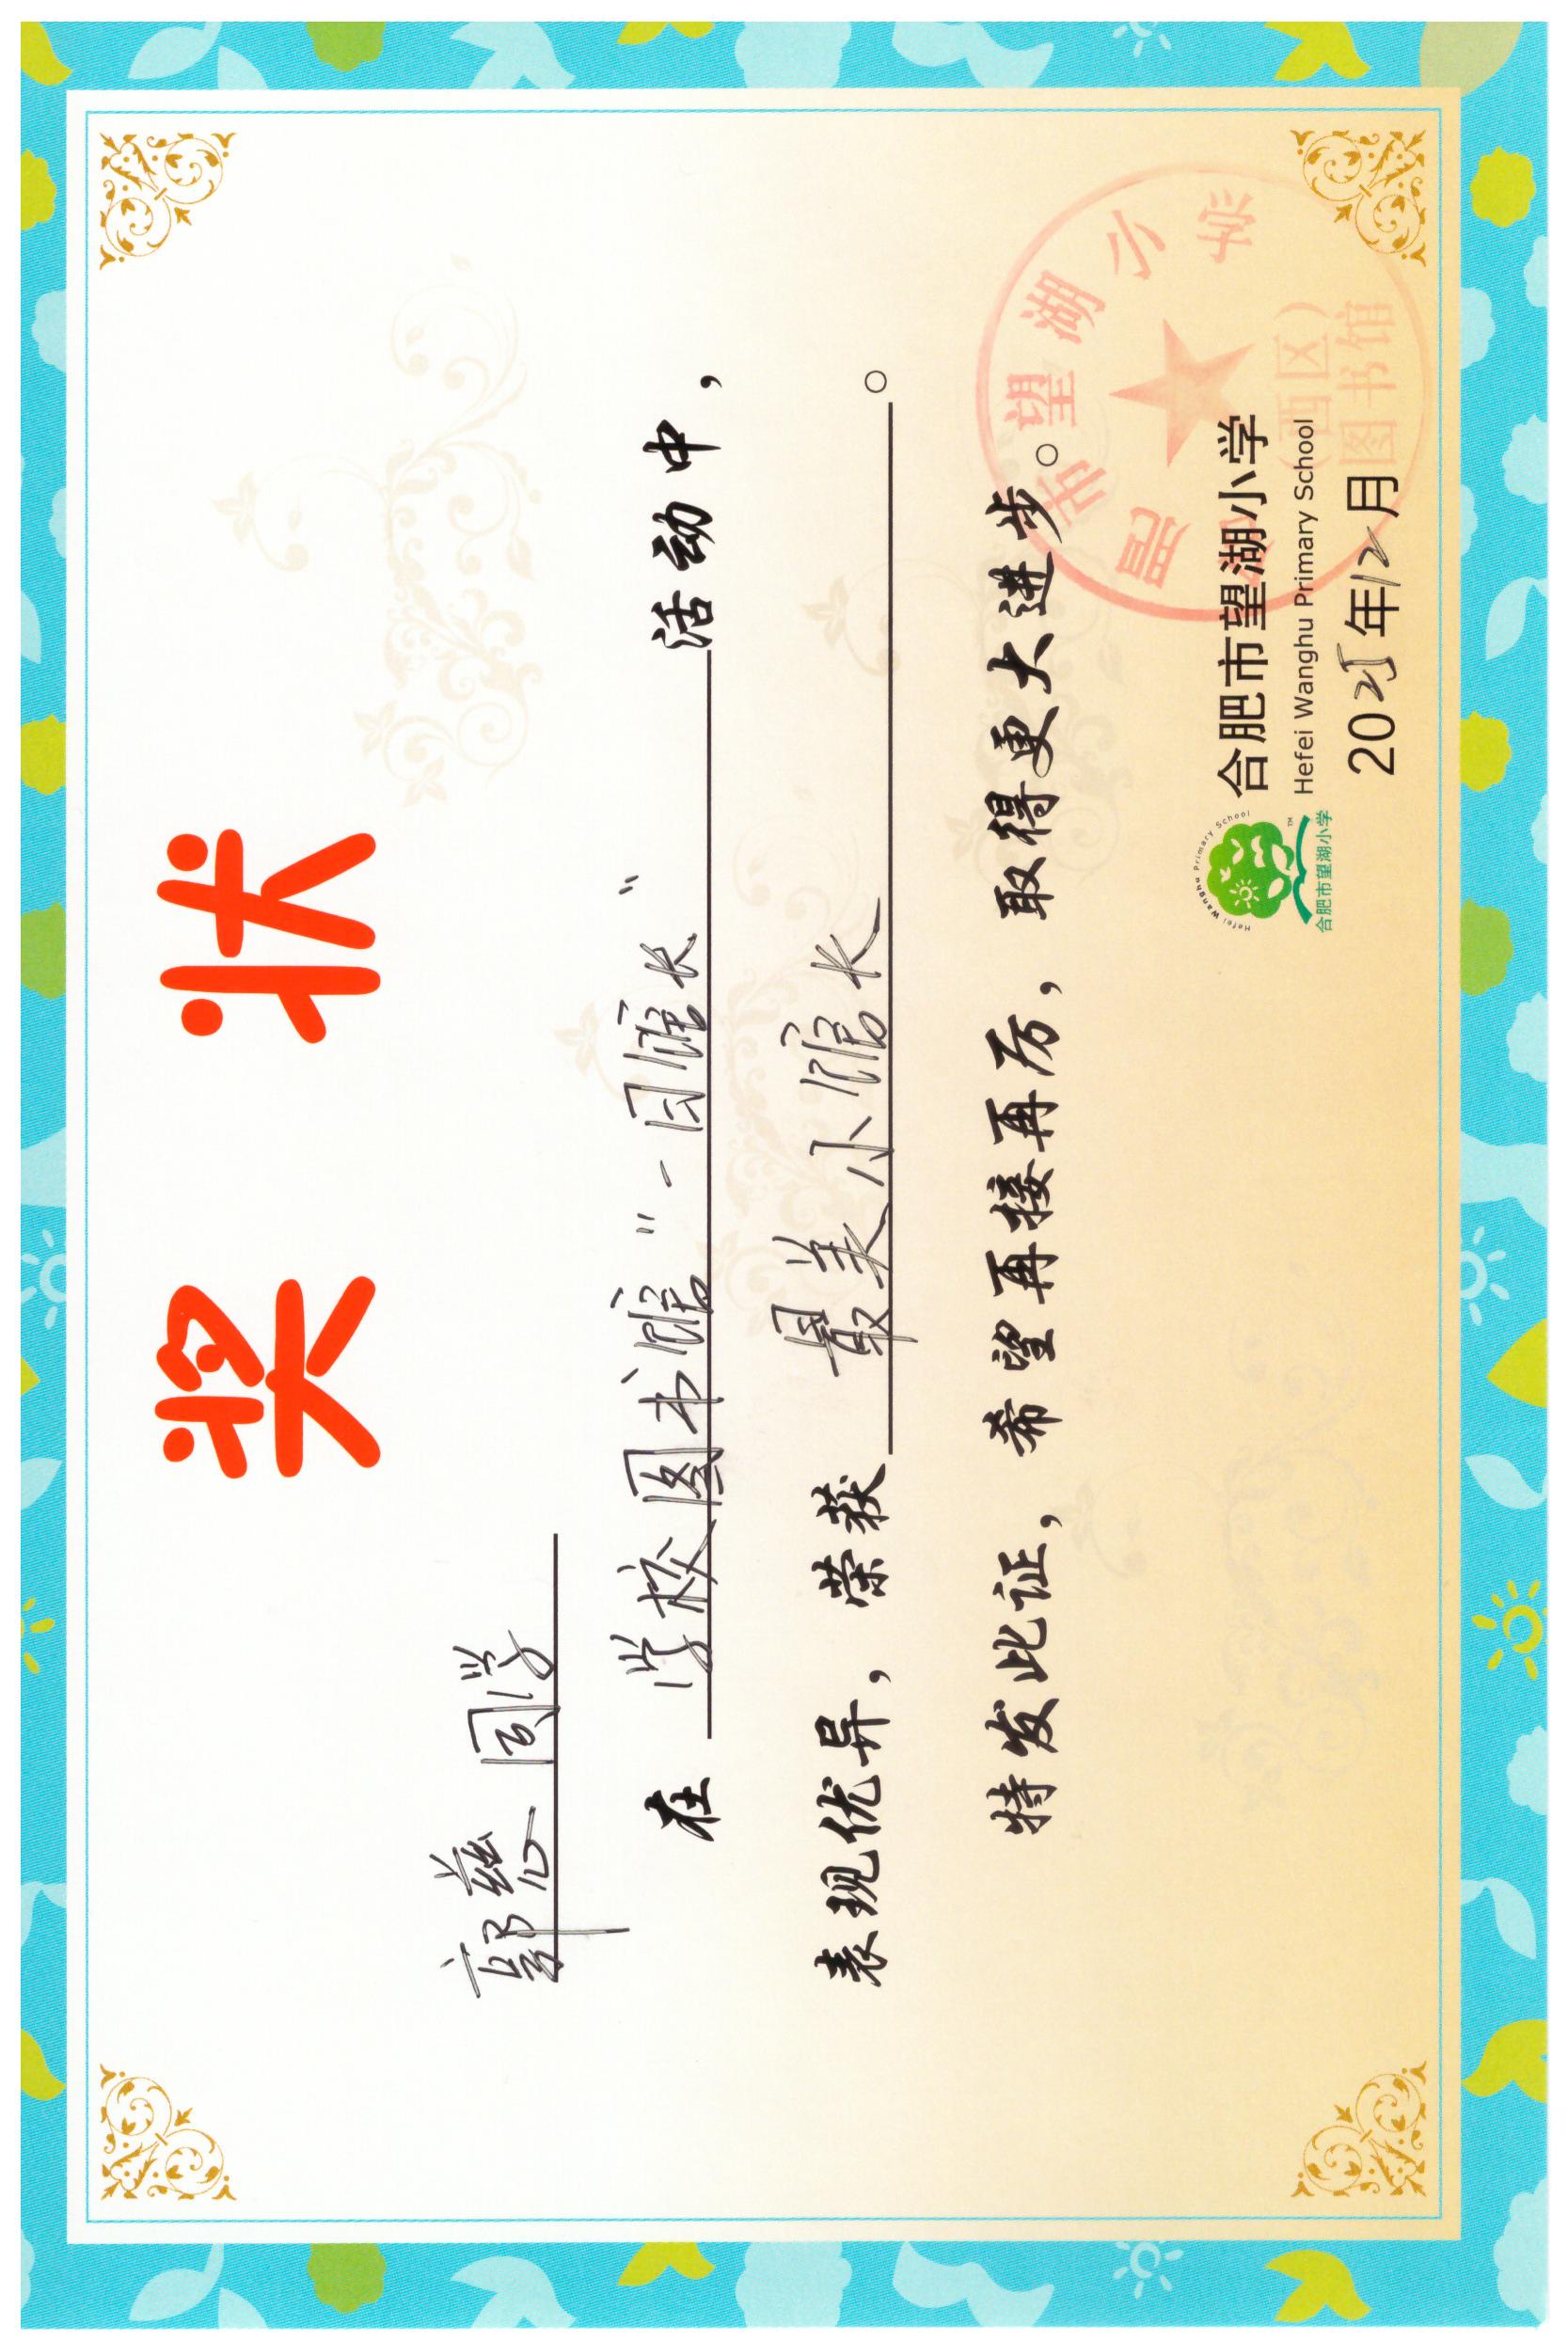 奖状
郭慈同学
在学校图书馆"一日馆长"活动中，
表现优异，荣获最美小馆长。
特发此证，希望再接再厉，取得更大进步。
Hefei Wanghu Primary School
合肥市望湖小学
TM
合肥市望湖小学
Hefei Wanghu Primary School
2025年12月
合肥市望湖小学
(西区)
图书馆